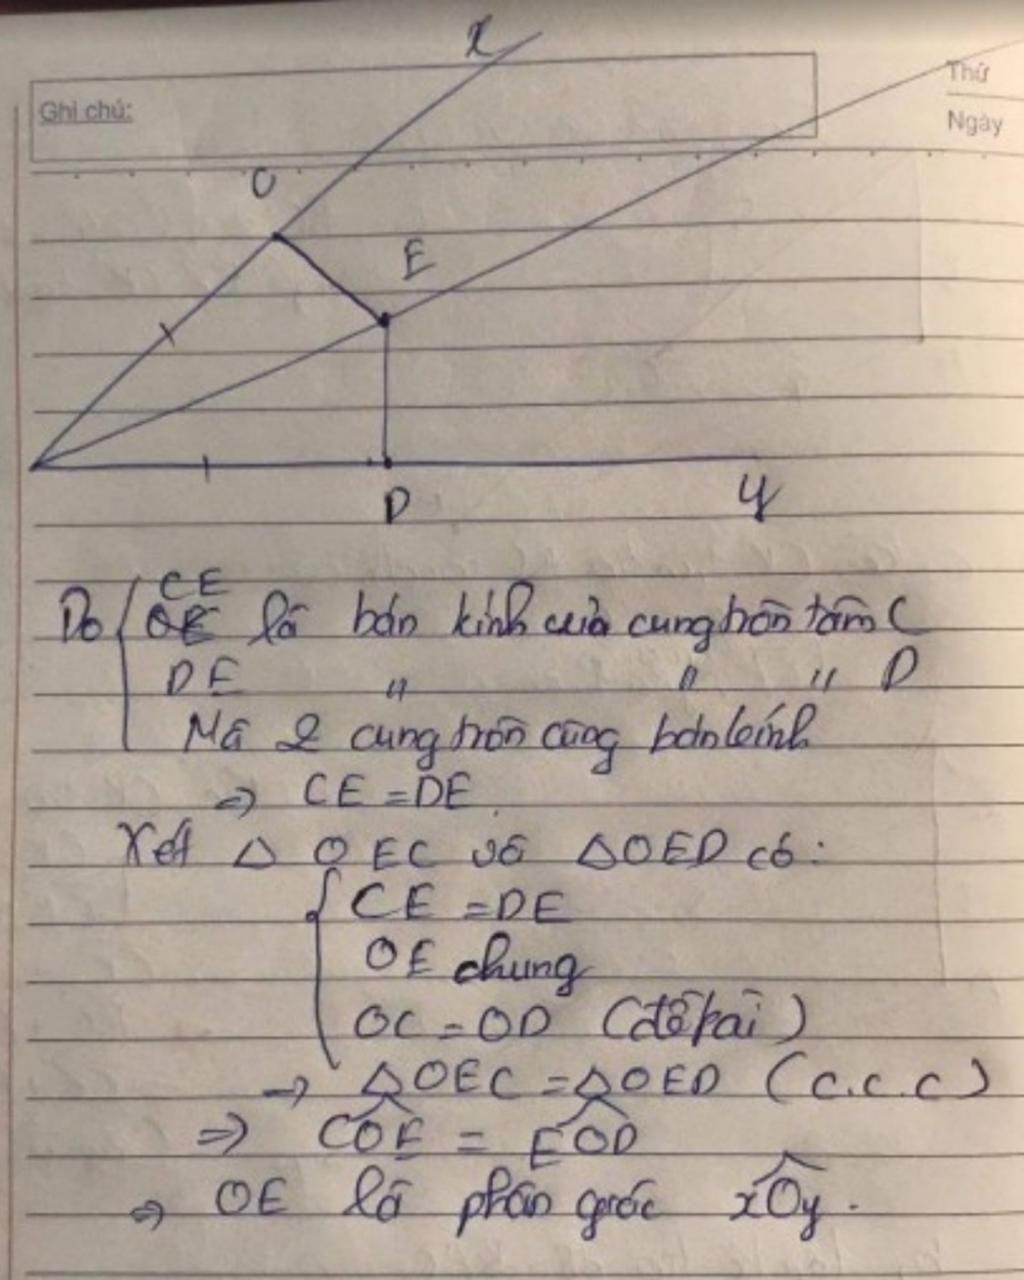 x
Ghi chú:
Thứ
Ngày
C
E
D
y
Do { CE là bán kính của cung tròn tâm C
DE " " " D
Mà 2 cung tròn cùng bán kính
=> CE = DE
Xét △ OEC và △OED có:
{ CE = DE
OE chung
OC = OD (đề bài)
→ △OEC = △OED (c.c.c)
=> CÔE = EÔD
=> OE là phân giác xÔy.